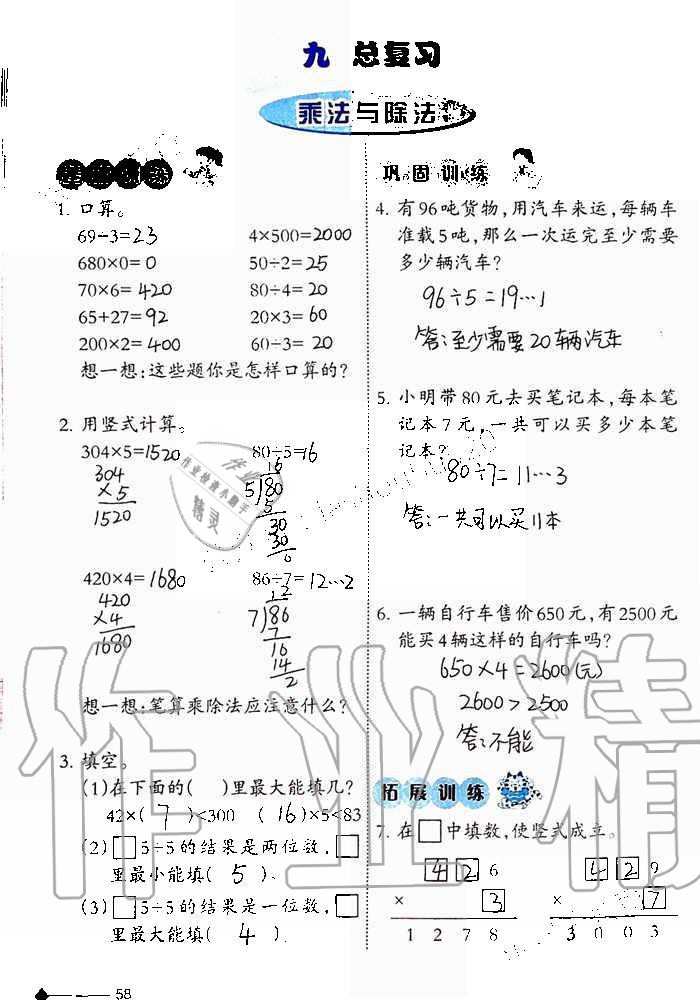 九 总复习
乘法与除法
基础训练
1. 口算。
69÷3=23 4×500=2000
680×0=0 50÷2=25
70×6=420 80÷4=20
65+27=92 20×3=60
200×2=400 60÷3=20
想一想:这些题你是怎样口算的?
2. 用竖式计算。
304×5=1520 80÷5=16
304
×5
1520
16
5 80
5
30
30
0
420×4=1680 86÷7=12…2
420
×4
1680
12
7 86
7
16
14
2
想一想:笔算乘除法应注意什么?
3. 填空。
(1)在下面的( )里最大能填几?
42×( 7 )<300 ( 16 )×5<83
(2)□5÷5的结果是两位数,□
里最小能填( 5 )。
(3)□5÷5的结果是一位数,□
里最大能填( 4 )
58
巩固训练
4. 有96吨货物,用汽车来运,每辆车
准载5吨,那么一次运完至少需要
多少辆汽车?
96÷5=19…1
答:至少需要20辆汽车
5. 小明带80元去买笔记本,每本笔
记本7元,一共可以买多少本笔
记本?
80÷7=11…3
答:一共可以买11本
6. 一辆自行车售价650元,有2500元
能买4辆这样的自行车吗?
650×4=2600(元)
2600>2500
答:不能
拓展训练
7. 在□中填数,使竖式成立。
4 2 6 4 2 9
× 3 × 7
1 2 7 8 3 0 0 3
作业精
作业检查小助手
作业
精灵